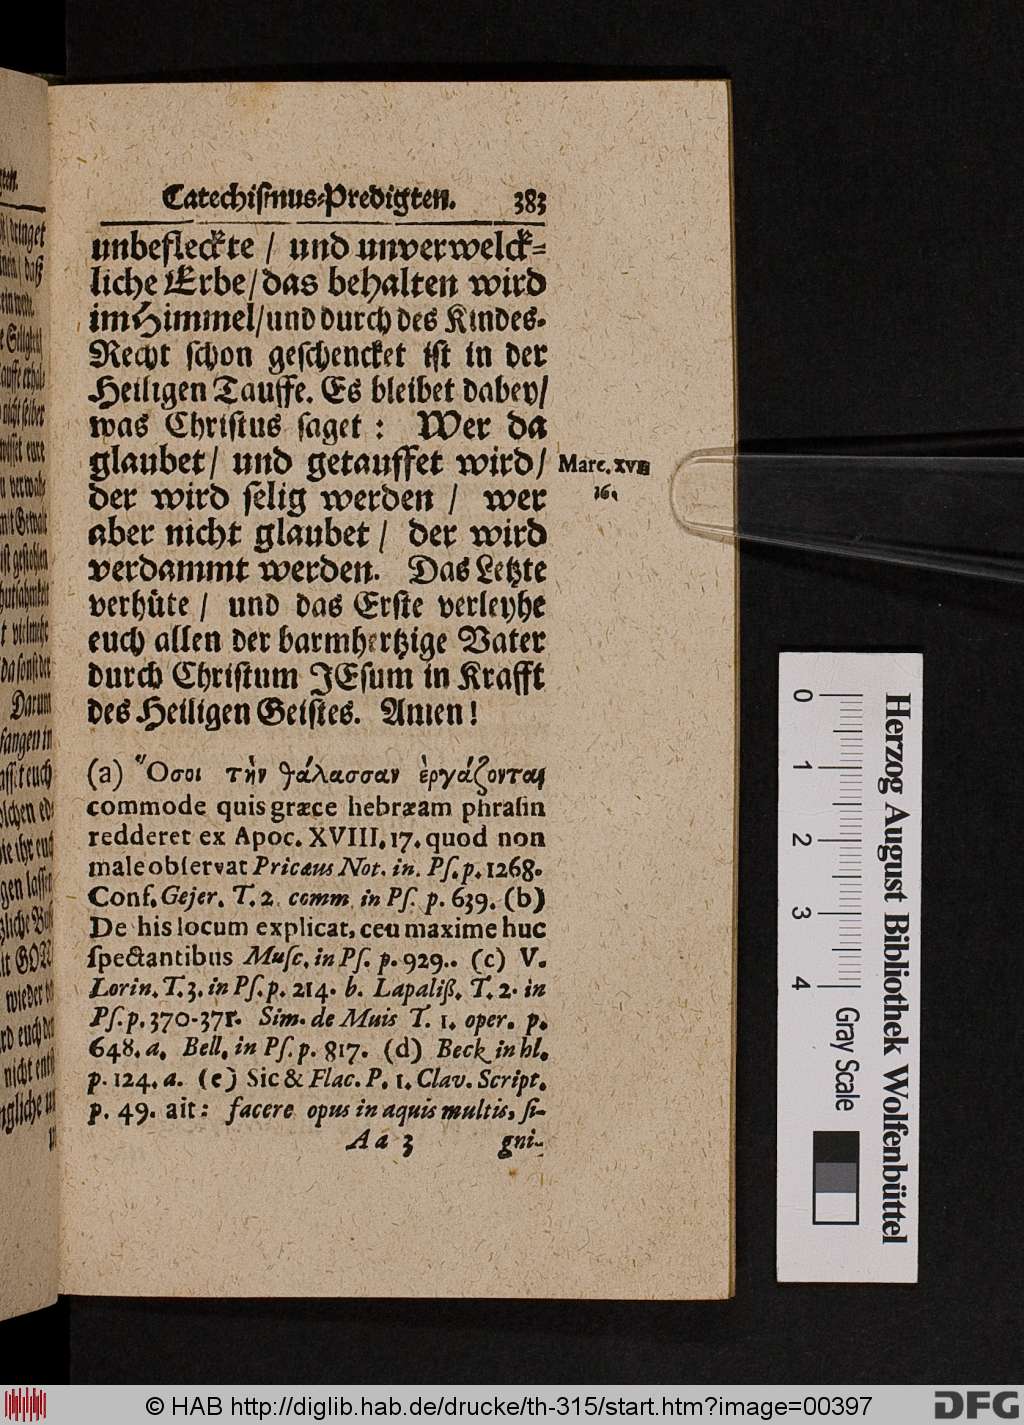 Catechismus-Predigten. 383
unbefleckte / und unverwelck-
liche Erbe / das behalten wird
im Himmel / und durch des Kindes-
Recht schon geschencket ist in der
Heiligen Tauffe. Es bleibet dabey /
was Christus saget: Wer da
glaubet / und getauffet wird /
Marc. XVI
16.
der wird selig werden / wer
aber nicht glaubet / der wird
verdammt werden. Das Letzte
verhüte / und das Erste verleyhe
euch allen der barmhertzige Vater
durch Christum JEsum in Krafft
des Heiligen Geistes. Amen!
(a) Ὅσοι τὴν θάλασσαν ἐργάζονται
commode quis græce hebræam phrasin
redderet ex Apoc. XVIII. 17. quod non
male observat Pricæus Not. in. Ps. p. 1268.
Conf. Gejer. T. 2. comm. in Ps. p. 639. (b)
De his locum explicat, ceu maxime huc
spectantibus Musc. in Ps. p. 929.. (c) V.
Lorin. T. 3. in Ps. p. 214. b. Lapaliß. T. 2. in
Ps. p. 370-371. Sim. de Muis T. 1. oper. p.
648. a. Bell. in Ps. p. 817. (d) Beck in hl.
p. 124. a. (e) Sic & Flac. P. 1. Clav. Script.
p. 49. ait: facere opus in aquis multis, si-
Aa 3 gni-
Herzog August Bibliothek Wolfenbüttel
0 1 2 3 4 Gray Scale
© HAB http://diglib.hab.de/drucke/th-315/start.htm?image=00397
DFG